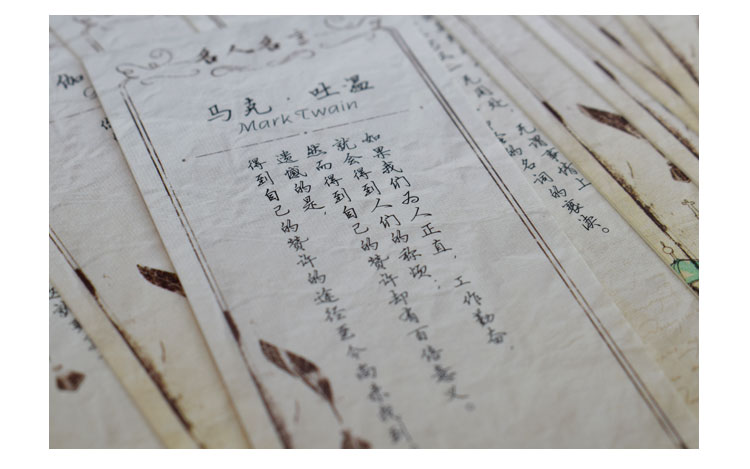 名人名言
马克·吐温
Mark Twain
如果我们为人正直，工作勤奋，
就会得到人们的称颂；
然而得到自己的赞许却有百倍意义。
遗憾的是，
得到自己的赞许的途径至今尚未找到
无谓事情上
的名词的亵渎。
伽